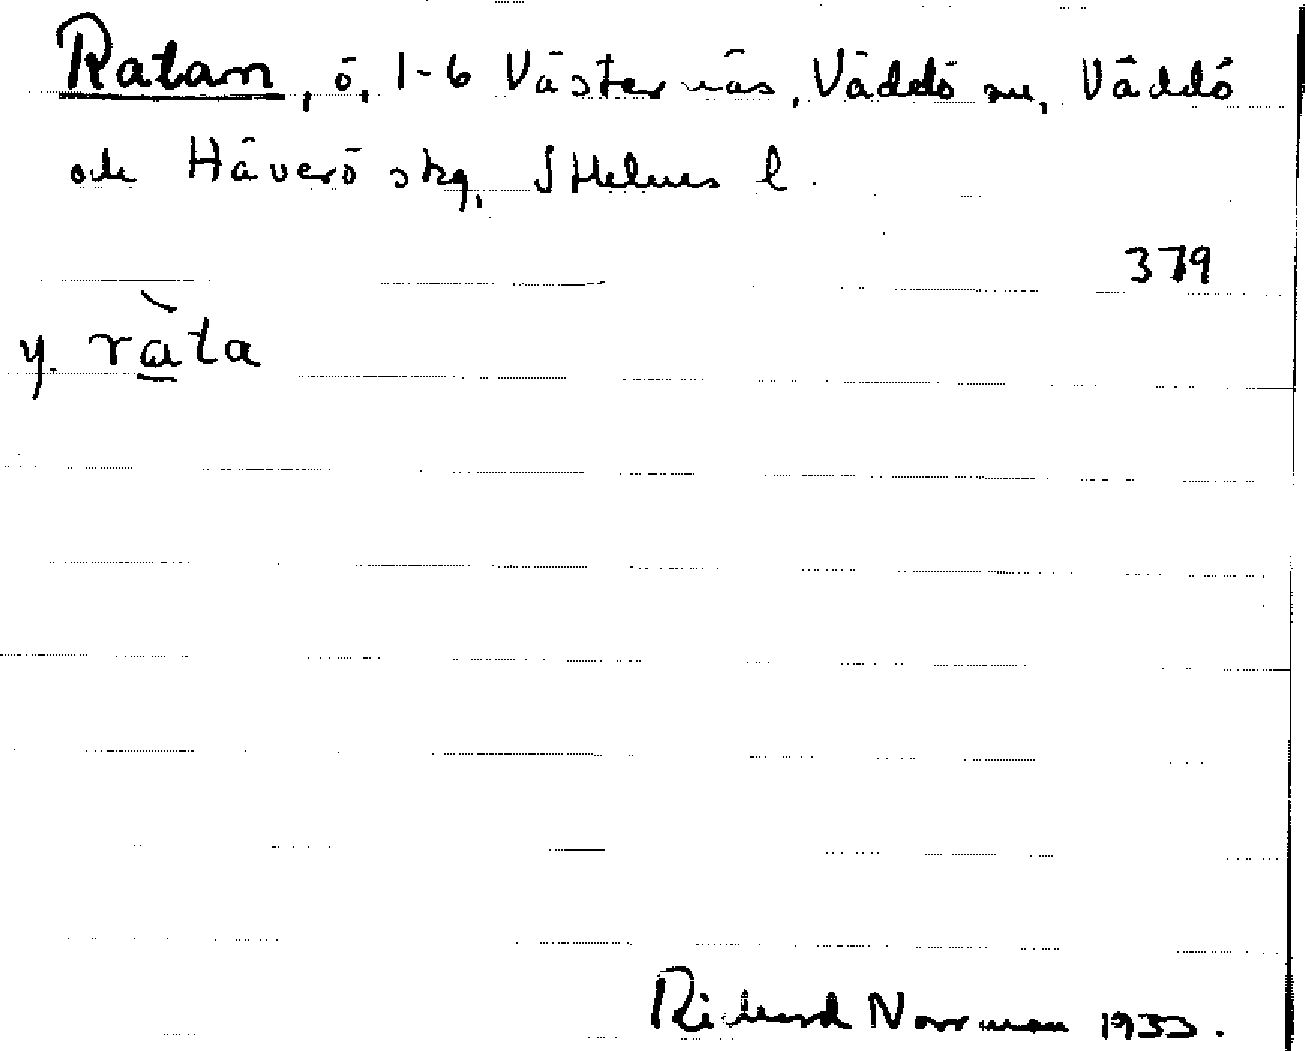 Ratan, ö, 1-6 Västernäs, Väddö sn, Väddö
och Häverö skg, Sthlms l.
379
y. ràta
Richard Norrman 1933.